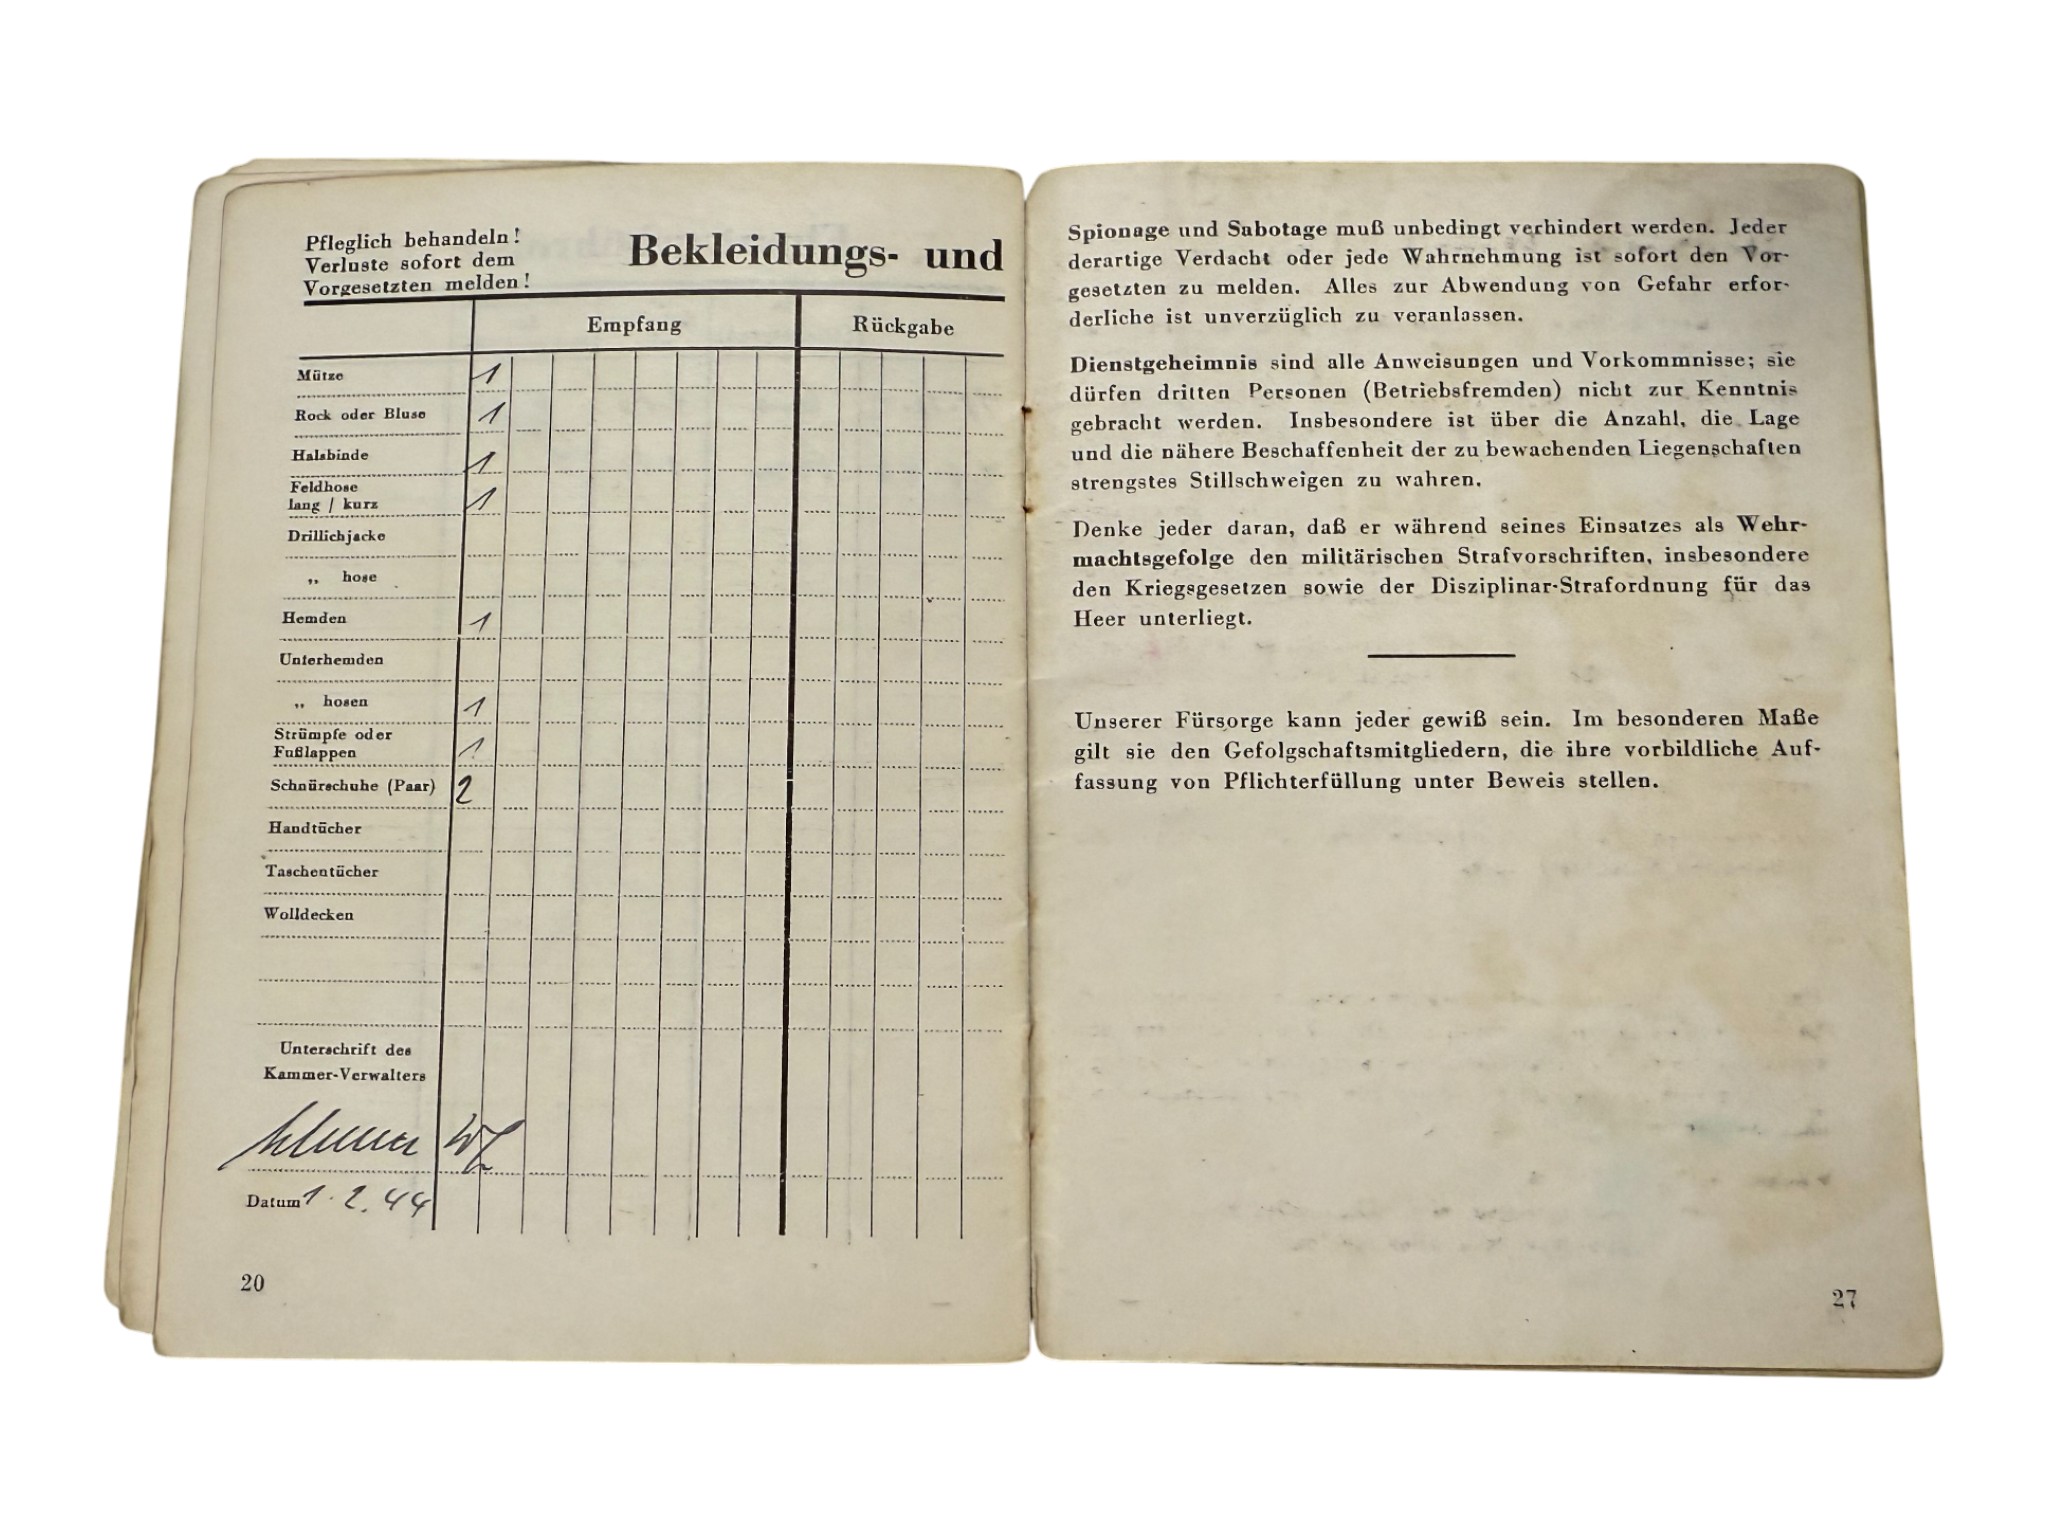 Pfleglich behandeln!
Verluste sofort dem
Vorgesetzten melden!
Bekleidungs- und
Empfang Rückgabe
Mütze 1
Rock oder Bluse 1
Halsbinde 1
Feldhose
lang / kurz 1
Drillichjacke
„ hose
Hemden 1
Unterhemden
„ hosen 1
Strümpfe oder
Fußlappen 1
Schnürschuhe (Paar) 2
Handtücher
Taschentücher
Wolldecken
Unterschrift des
Kammer-Verwalters
Datum 1.2.44
20
Spionage und Sabotage muß unbedingt verhindert werden. Jeder
derartige Verdacht oder jede Wahrnehmung ist sofort den Vor-
gesetzten zu melden. Alles zur Abwendung von Gefahr erfor-
derliche ist unverzüglich zu veranlassen.
Dienstgeheimnis sind alle Anweisungen und Vorkommnisse; sie
dürfen dritten Personen (Betriebsfremden) nicht zur Kenntnis
gebracht werden. Insbesondere ist über die Anzahl, die Lage
und die nähere Beschaffenheit der zu bewachenden Liegenschaften
strengstes Stillschweigen zu wahren.
Denke jeder daran, daß er während seines Einsatzes als Wehr-
machtsgefolge den militärischen Strafvorschriften, insbesondere
den Kriegsgesetzen sowie der Disziplinar-Strafordnung für das
Heer unterliegt.
Unserer Fürsorge kann jeder gewiß sein. Im besonderen Maße
gilt sie den Gefolgschaftsmitgliedern, die ihre vorbildliche Auf-
fassung von Pflichterfüllung unter Beweis stellen.
27